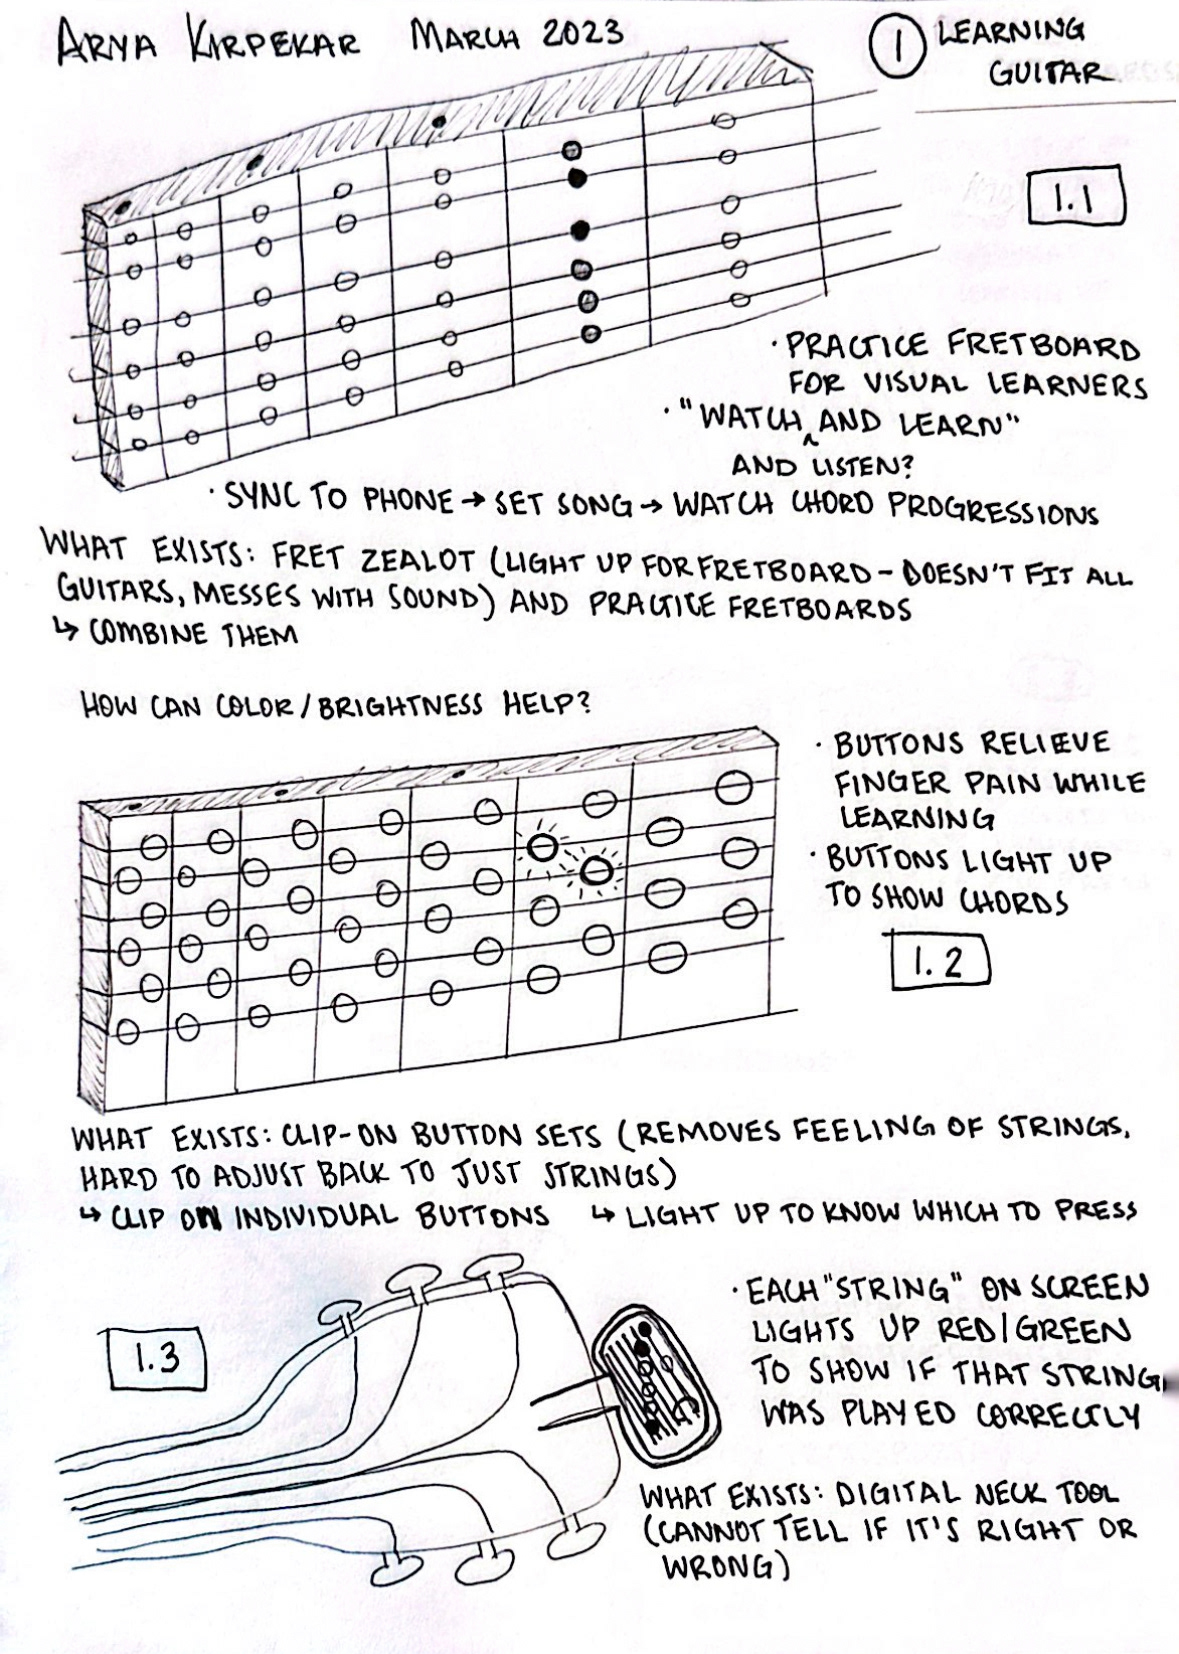 ARYA KIRPEKAR MARCH 2023
1 LEARNING
GUITAR
1.1
· PRACTICE FRETBOARD
FOR VISUAL LEARNERS
· "WATCH ^ AND LEARN"
AND LISTEN?
· SYNC TO PHONE → SET SONG → WATCH CHORD PROGRESSIONS
WHAT EXISTS: FRET ZEALOT (LIGHT UP FOR FRETBOARD - DOESN'T FIT ALL
GUITARS, MESSES WITH SOUND) AND PRACTICE FRETBOARDS
↳ COMBINE THEM
HOW CAN COLOR/BRIGHTNESS HELP?
· BUTTONS RELIEVE
FINGER PAIN WHILE
LEARNING
· BUTTONS LIGHT UP
TO SHOW CHORDS
1.2
WHAT EXISTS: CLIP-ON BUTTON SETS (REMOVES FEELING OF STRINGS,
HARD TO ADJUST BACK TO JUST STRINGS)
↳ CLIP ON INDIVIDUAL BUTTONS ↳ LIGHT UP TO KNOW WHICH TO PRESS
1.3
· EACH "STRING" ON SCREEN
LIGHTS UP RED/GREEN
TO SHOW IF THAT STRING
WAS PLAYED CORRECTLY
WHAT EXISTS: DIGITAL NECK TOOL
(CANNOT TELL IF IT'S RIGHT OR
WRONG)